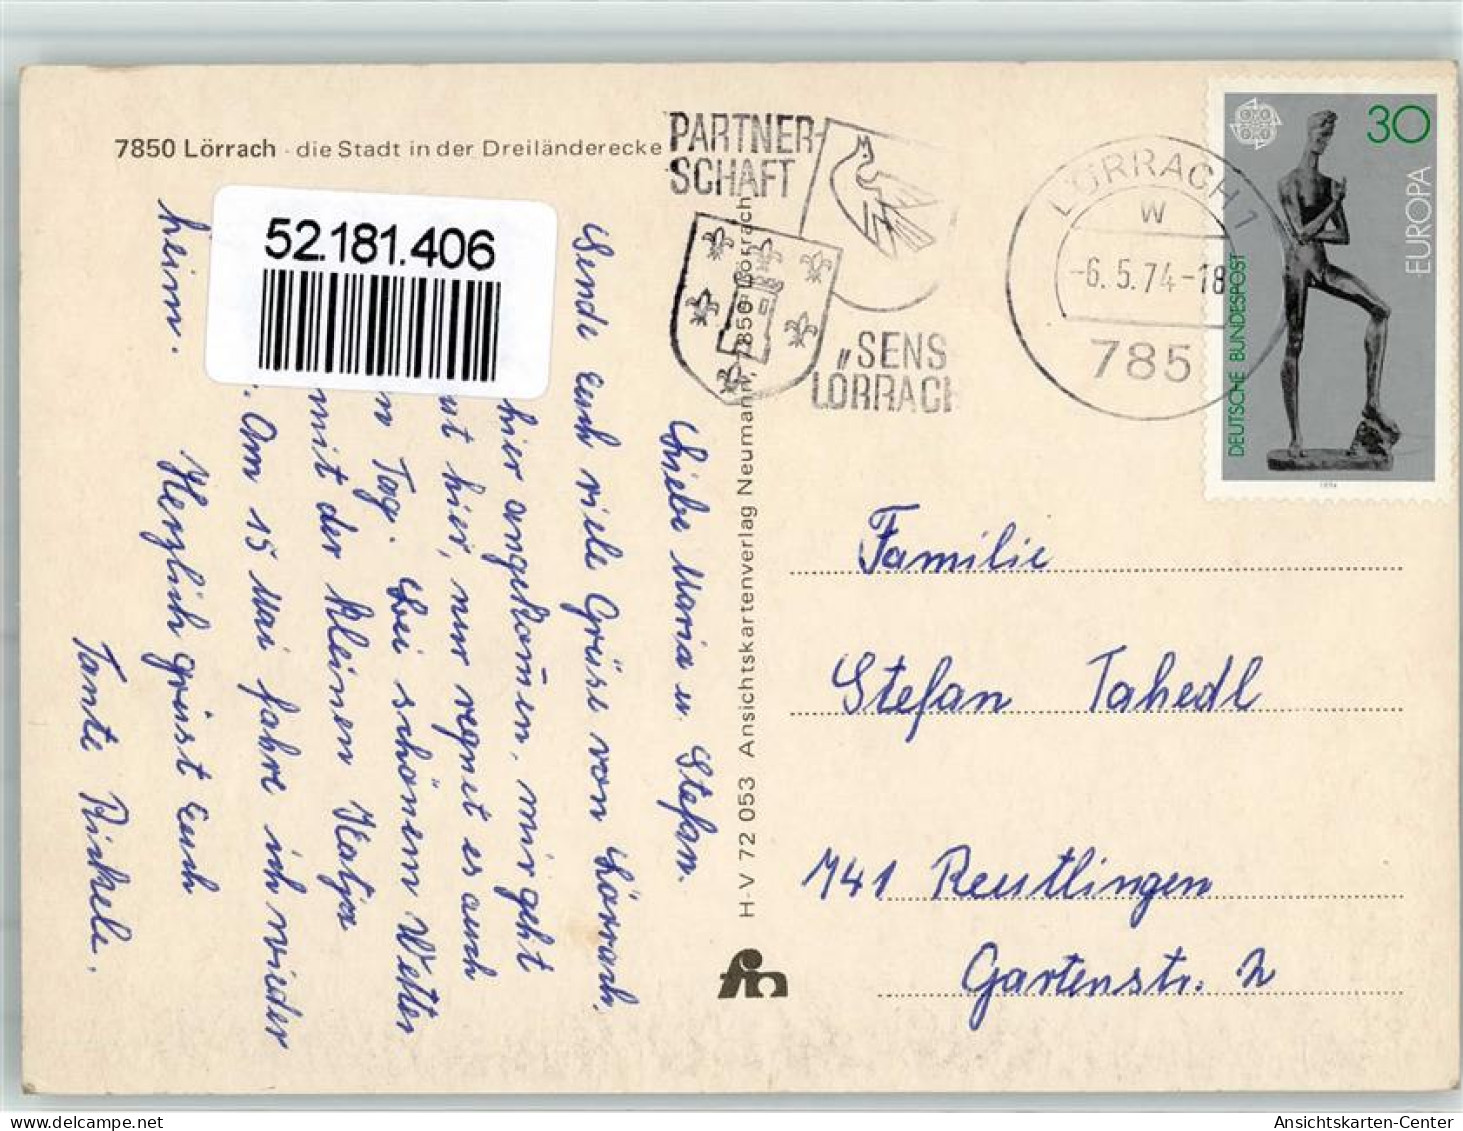 7850 Lörrach · die Stadt in der Dreiländerecke
52.181.406
PARTNER-
SCHAFT
„SENS
LÖRRACH
LÖRRACH 1
W
-6.5.74-18
785
30
EUROPA
DEUTSCHE BUNDESPOST
1974
H-V 72 053 Ansichtskartenverlag Neumann, 7850 Lörrach
Liebe Maria u. Stefan.
Sende Euch viele Grüße von Lörrach.
hier angekom̄en, mir geht
hier, nur regnet es auch
Tag. Bei schönem Wetter
mit der kleinen Katja
. Am 15 Mai fahre ich wieder
heim. Herzlich grüsst Euch
Tante Rickele.
Familie
Stefan Tahedl
741 Reutlingen
Gartenstr. 2
fm
Ansichtskarten-Center